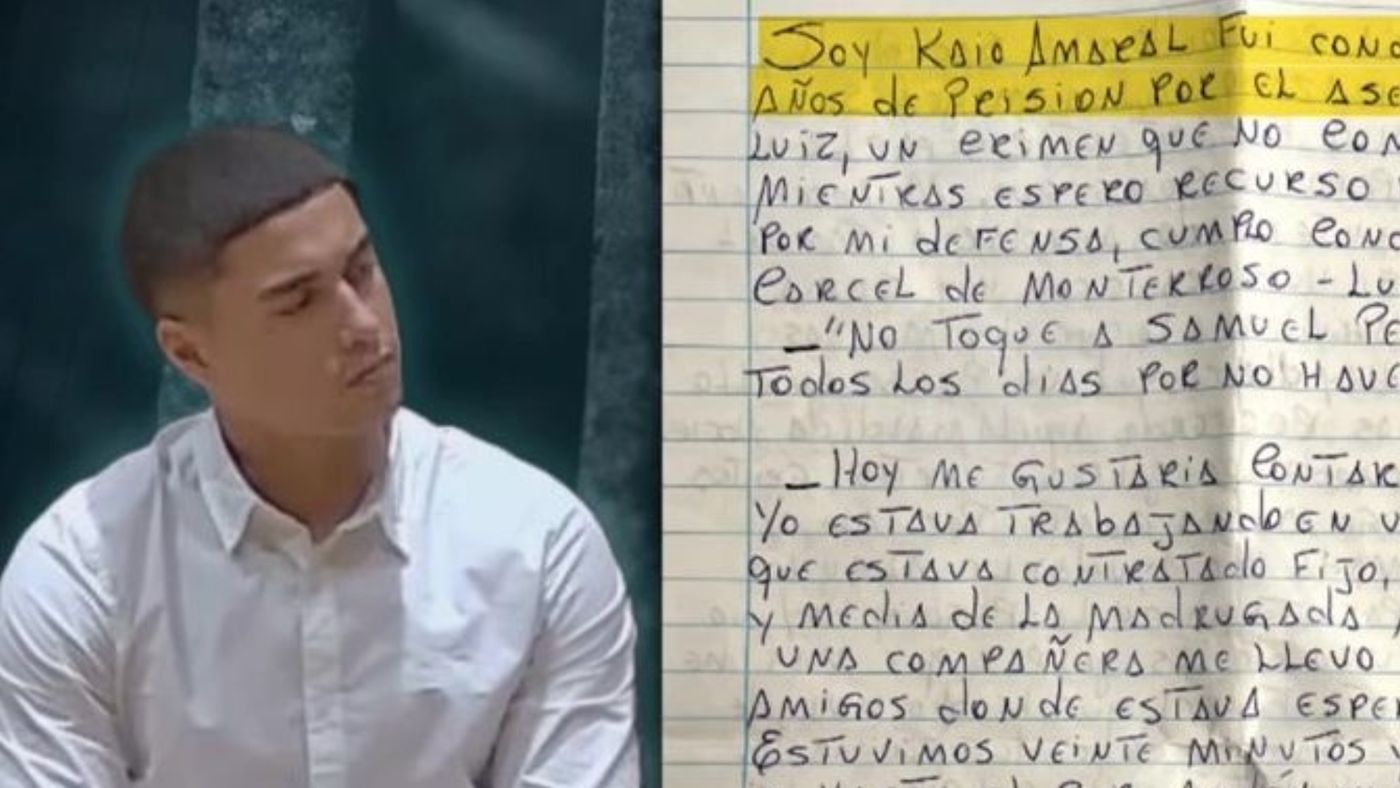 Soy Kaio Amaral Fui cond
Años de Prision por el ase
Luiz, un crimen que no com
Mientras espero recurso
por mi defensa, cumplo cond
carcel de Monterroso - Lu
- "No toque a Samuel Pe
todos los dias por no have
- Hoy me gustaria contar
Yo estava trabajando en v
que estava contratado fijo,
y media de la madrugada
una compañera me llevo
amigos donde estava esper
Estuvimos veinte minutos v